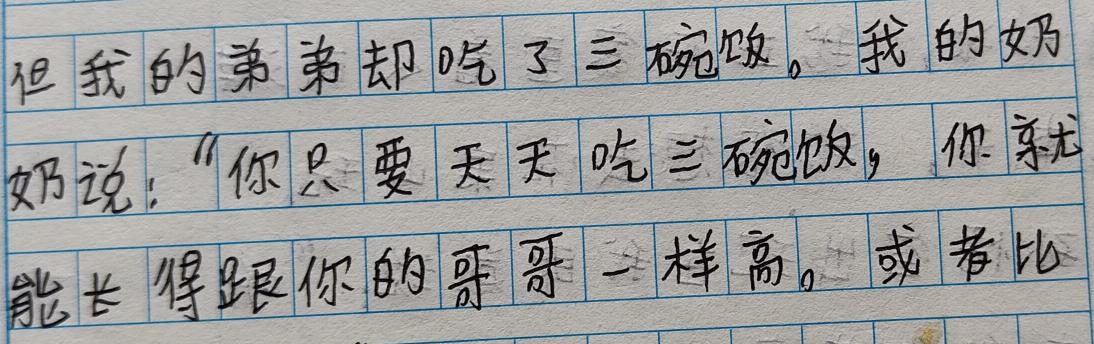 但我的弟弟却吃了三碗饭。我的奶
奶说：“你只要天天吃三碗饭，你就
能长得跟你的哥哥一样高。或者比